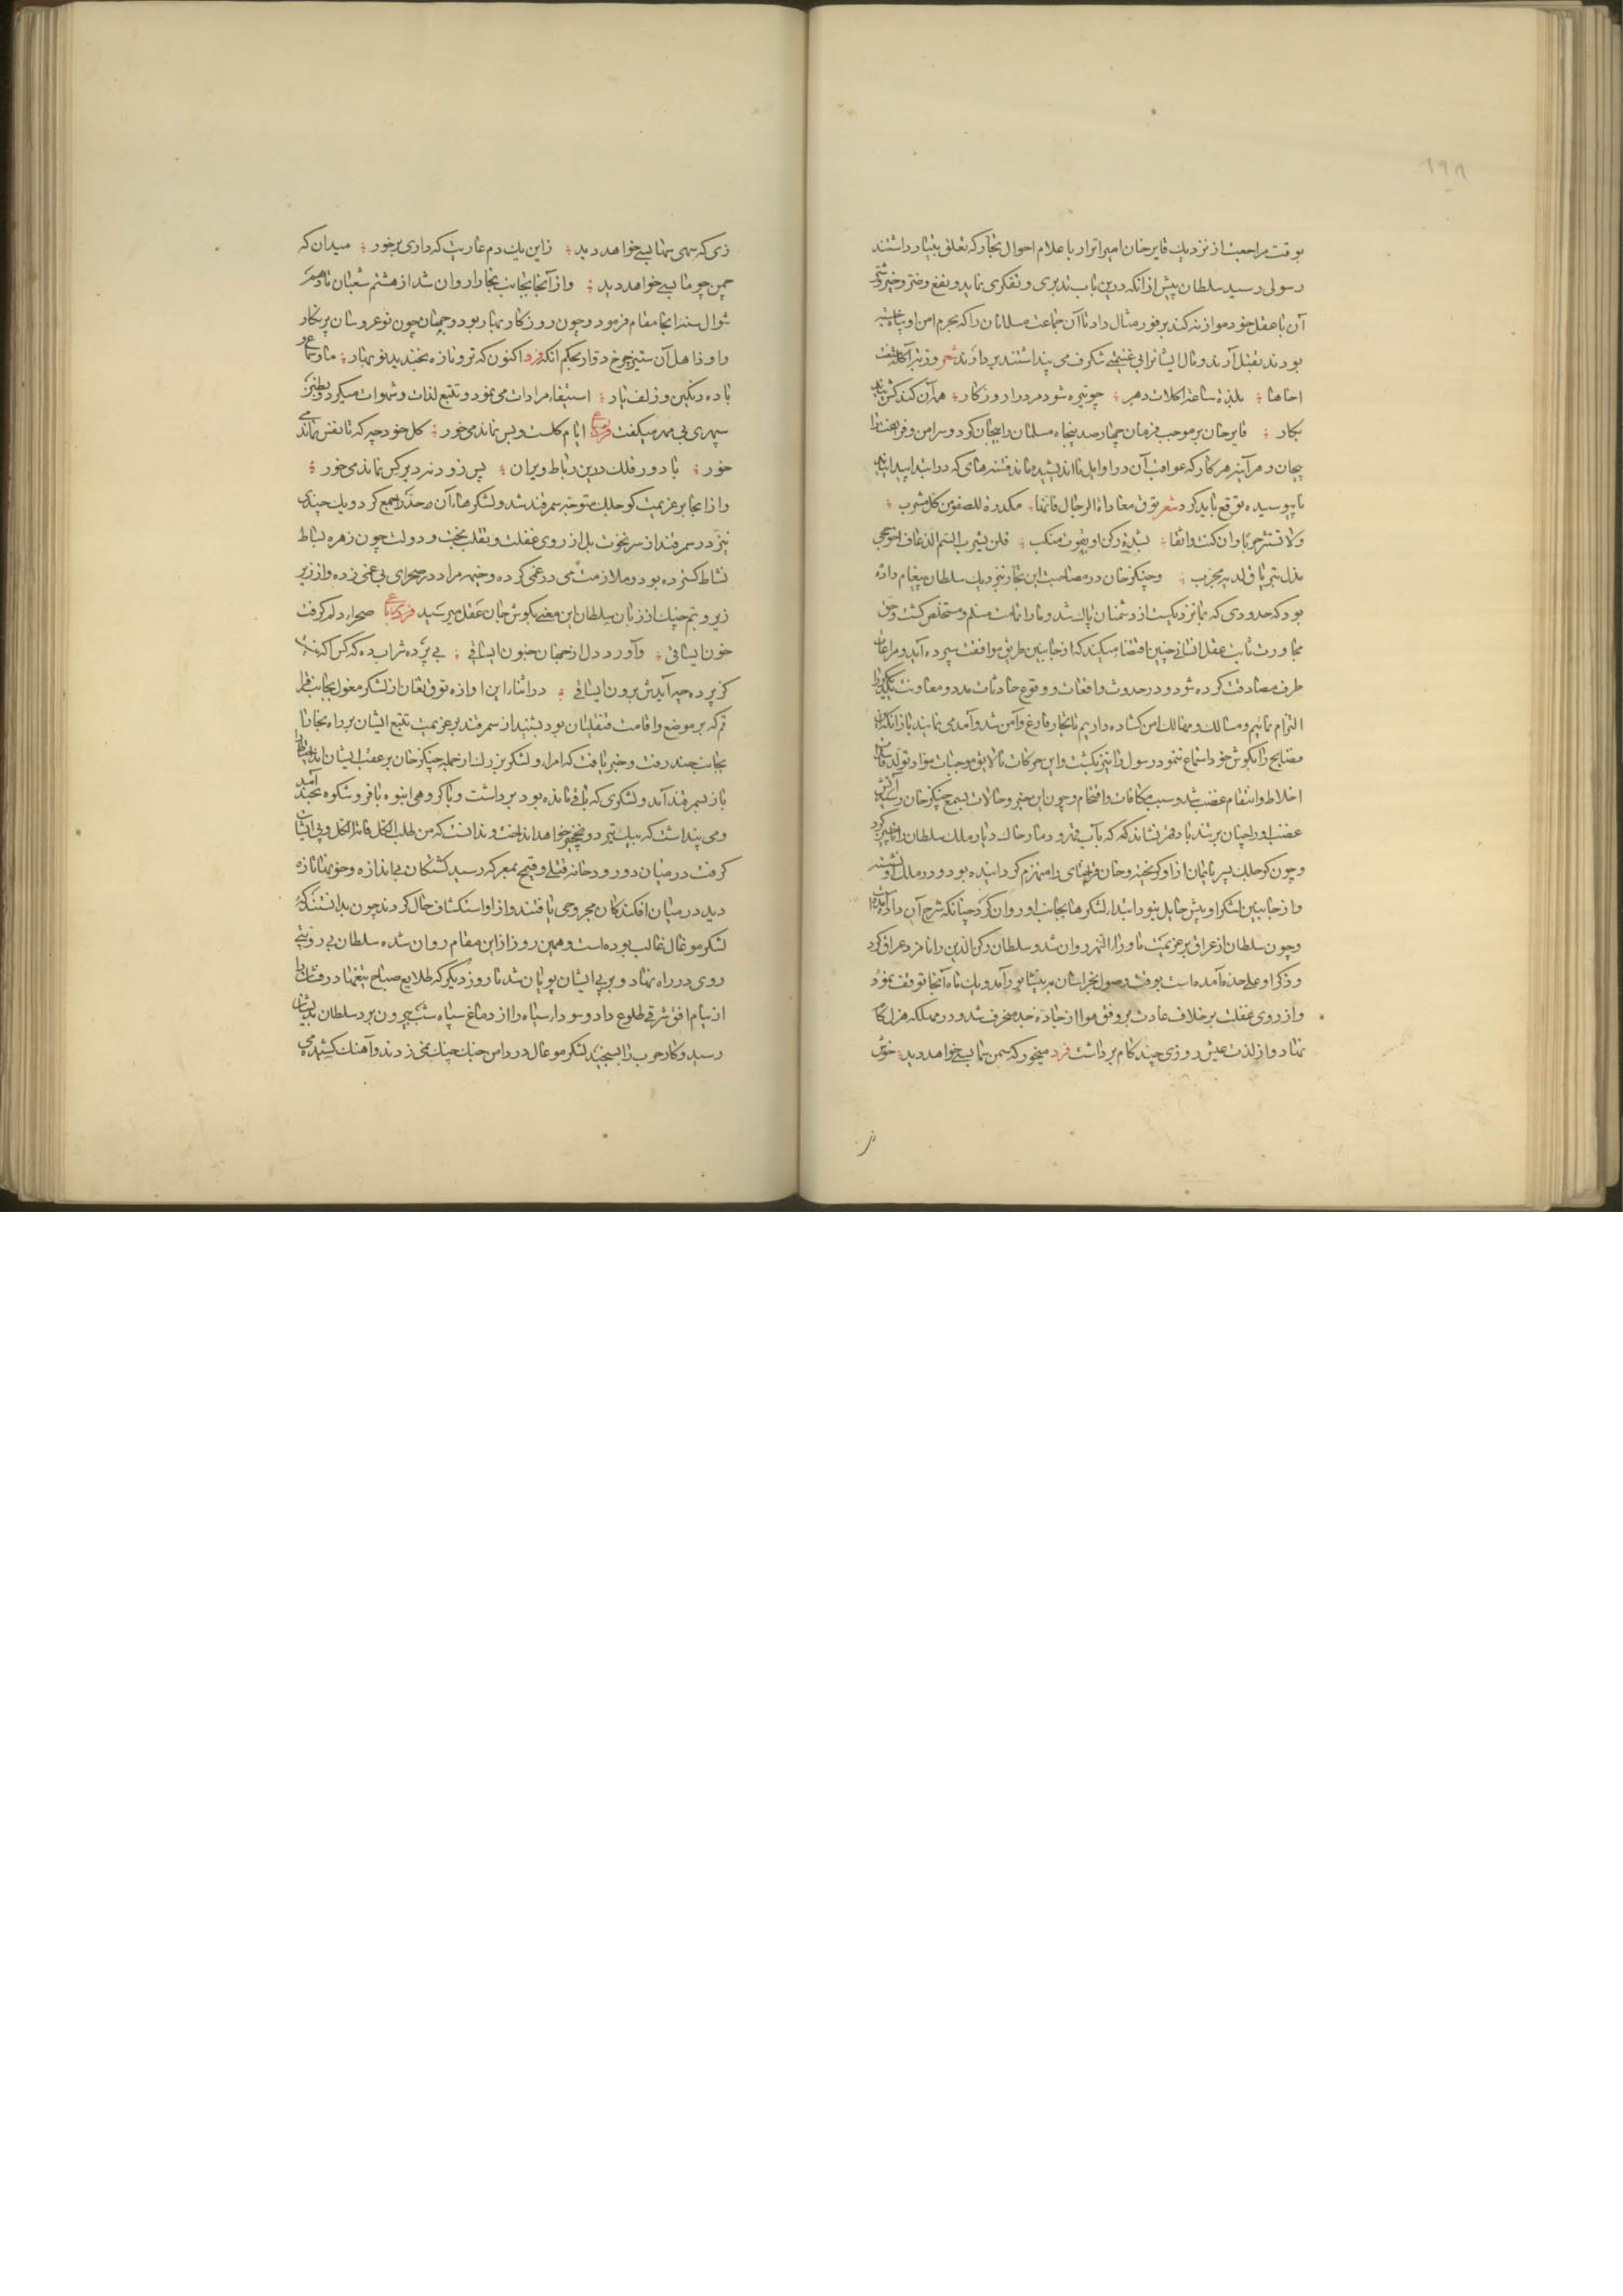 ۱۹۸
بوقت مراجعت از نزدیک قایرخان امیر اترار باعلام احوال تجار که تعلق بتتار داشتند
رسولی رسید سلطان پیش از انکه درین باب تدبری و تفکری نماید و نفع و ضرّ و خیر و شر
آن با عقل خود موازنه کند بر فور مثال داد تا آن جماعت مسلمانان را که بحرم امن او پناهیده
بودند بقتل آرند و مال ایشانرا بی غنیمتی شگرف می پنداشتند بردارند شعر
احاها ؛ بلذة ساعة اکلات دهر ؛ چو تیره شود مرد را روزکار ؛ همه آن کند کش نیاید
بکار ؛ قایرخان بر موجب فرمان چهارصد پنجاه مسلمان را بیجان کرد و سر امن و فراغت را
پیچان و هر آینه هر کار که عواقب آن در اوایل نااندیشیده ماند فتنه های که در ابتدا پیدا نیاید
نابیوسیده توقع باید کرد شعر توق معاداة الرجال فانها ؛ مکدرة للصفو من کل مشرب ؛
ولا تستثر حربا وان کنت واثقا ؛ بشدة رکن او بقوت منکب ؛ فلن یشرب السم الذعاف اخو حجی
مدل بتریاق لدیه مجرب ؛ و چنکزخان در مصاحبت این تجار نیز بنزدیک سلطان پیغام داده
بود که حدودی که بما نزدیکست از دشمنان پاک شد و ما را تمامت مسلم و مستخلص کشت و حق
مجاورت ثابت عقل انسانی چنین اقتضا میکند که از جانبین طریق موافقت سپرده آید و مراعات
طرف مصادقت کرده شود و در حدوث واقعات و وقوع حادثات مدد و معاونت یکدیگر را
التزام نمائیم و مسالک و ممالک امن کشاده داریم تا تجار فارغ و آمن شد و آمد می نمایند باز انکه این
مصایح را بکوش خود استماع ننمود رسول را نیز بکشت و این حرکات نالایق موجبات مواد تولد فساد
اخلاط و انتقام غضب شد و سبب مکافات و اقتحام و چون این خبر و حالات بسمع چنکزخان رسید آتش
غضب او را چنان بر تند باد قهر نشاند که که بآب قهر و دمار خاک دیار ملک سلطان را ناچیز کرد
و چون کوجلک پسر تایانک از او کریخته و خان قراختای را منهزم کردانیده بود و در ملک او نشسته
و از جانبین لشکر او پیش حایل بود ابتداء لشکرها بجانب او روان کرد چنانکه شرح آن داده آمده است
و چون سلطان از عراق بر عزیمت ماوراء النهر روان شد و سلطان رکن الدین را نامزد عراق کرد
و ذکر او علی حده آمده است بوقت وصول بخراسان بر نیشابور آمد و یک ماه آنجا توقف نمود
و از روی غفلت بر خلاف عادت بر وفق هوا از جادّه جد منحرف شد و در مملکه هزل کام
نهاد و از لذت عیش روزی چند کام برداشت فرد میخور که سمن بسی خواهد دید ؛ خوش
زی که سهی بسی خواهد دید ؛ زین یک دم عاریت که داری برخور ؛ میدان که
چمن چو ما بسی خواهد دید ؛ و از آنجا بجانب بخارا روان شد از هشتم شعبان تا دهم
شوال سنه انجا مقام فرمود و چون روزکار بهار بود و جهان چون نوعروسان پرنکار
و او ذاهل آن ستیز چرخ دوار بحکم انکه فرد اکنون که تر و تازه بخندید نوبهار ؛ ما و سماع و
باده رنکین و زلف یار ؛ استیفاء مرادات می نمود و تتبع لذات و شهوات میکرد و بطنز
سپهری بی مهر میکفت فرد ایام کلست و بس نماند می خور ؛ کل خود چه که تا نفس نماند می
خور ؛ با دور فلک درین رباط ویران ؛ پس زود نرد بر کس نماند می خور ؛
و از انجا بر عزیمت کوجلک متوجه سمرقند شد و لشکرهاء آن حد را جمع کرد و یک چندی
نیز در سمرقند از سر نخوت بل از روی غفلت و تقلب بخت و دولت چون زهره بساط
نشاط کسترده بود و ملازمت می در غمی کرده و خیمه مراد در صحرای بی غمی زده و از زیر
زیر و بم چنک از زبان سلطان این معنی بکوش جان عقل میرسید فرد صحراء دلم کرفت
خون ای ساقی ؛ وآورد دل از جهان جنون ای ساقی ؛ بی پرده شراب ده که کس اکه نیست
کز پرده چه آیدش برون ای ساقی ؛ در اثناء این اوازه توق تغان از لشکر مغول بجانب قرا
قم که بر موضع و اقامت قنقلیان بود بشنید از سمرقند بر عزیمت تتبع ایشان بر راه بخارا تا
بجانب جند رفت و خبر یافت که امراء و لشکر بزرک از جمله چنکزخان بر عقب ایشان اند احتیاط را
باز بسمرقند آمد و لشکری که باقی مانده بود برداشت و با کروهی انبوه با فر و شکوه بجند آمد
و می پنداشت که بیک تیر دو نخجیر خواهد انداخت و ندانست که من طلب الکل فاته الکل و پی ایشان
کرفت در میان دو رودخانه قیلی و قیمج بمعرکه رسید کشتکان بی اندازه و خونها تازه
دید در میان افکندکان مجروحی یافتند و از او استکشاف حال کردند چون بدانستند که
لشکر موغال غالب بوده است و همین روز از این مقام روان شده سلطان بی رویتی
روی در راه نهاد و بر پی ایشان پویان شد تا روز دیکر که طلایع صباح تیغها در قتال را
از نیام افق شرقی طلوع داد و سوداء سیاه را از دماغ سپاه شب بیرون برد سلطان بدیشان
رسید و کار حرب را بسیجید لشکر موغال در دامن جنک چنک نمی زدند و آهنک کشش می